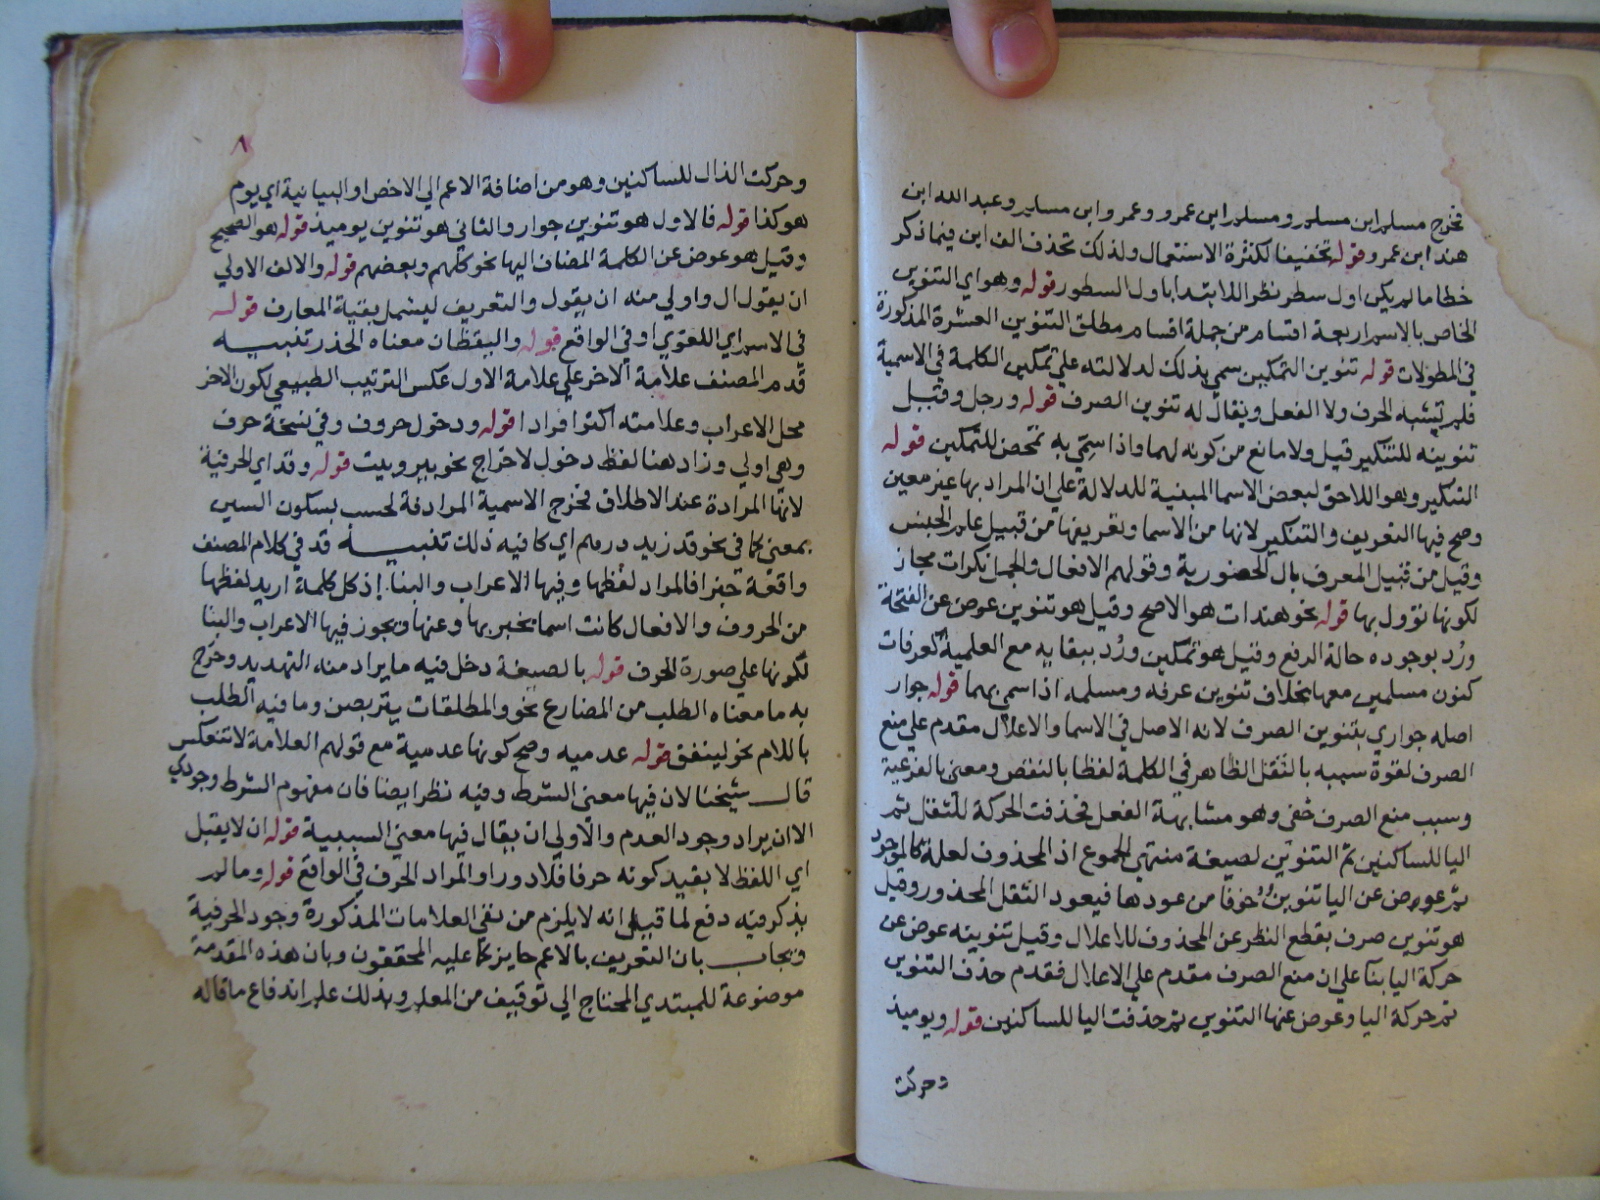 تخرج مسلم ابن مسلم ومسلم ابن عمرو وعمرو ابن مسلم وعبد الله ابن
هند ابن عمرو قوله تخفيفا لكثرة الاستعمال ولذلك تحذف الف ابن فيما ذكر
خطا ما لم يكن اول سطر نظرا للابتدا باول السطور قوله وهو اي التنوين
الخاص بالاسم اربعة اقسام من جملة اقسام مطلق التنوين العشرة المذكورة
في المطولات قوله تنوين التمكين سمي بذلك لدلالته علي تمكين الكلمة في الاسمية
فلم تشبه الحرف ولا الفعل ويقال له تنوين الصرف قوله ورجل وقيل
تنوينه للتنكير قيل ولا مانع من كونه لهما واذا سمي به تمحض للتمكين قوله
التنكير وهو اللاحق لبعض الاسما المبنية للدلالة علي ان المراد بها غير معين
وصح فيها التعريف والتنكير لانها من الاسما وتعريفها من قبيل علم الجنس
وقيل من قبيل المعرف بال الحضورية وقولهم الافعال والجمل نكرات مجاز
لكونها تؤول بها قوله نحو هندات هو الاصح وقيل هو تنوين عوض عن الفتحة
ورد بوجوده حالة الرفع وقيل هو تمكين ورد ببقايه مع العلمية كعرفات
كنون مسلمين معها بخلاف تنوين عرفه ومسلمه اذا سمي بهما قوله جوار
اصله جواري بتنوين الصرف لانه الاصل في الاسما والاعلال مقدم علي منع
الصرف لقوة سببه بالثقل الظاهر في الكلمة لفظا بالنقص ومعني بالفرعية
وسبب منع الصرف خفي وهو مشابهة الفعل فحذفت الحركة للثقل ثم
اليا للساكنين ثم التنوين لصيغة منتهي الجموع اذ المحذوف لعلة كالموجود
ثم عوض عن اليا تنوين خوفا من عودها فيعود الثقل المحذور وقيل
هو تنوين صرف بقطع النظر عن المحذوف للاعلال وقيل تنوينه عوض عن
حركة اليا بنا علي ان منع الصرف مقدم علي الاعلال فقدم حذف التنوين
ثم حركة اليا وعوض عنها التنوين ثم حذفت اليا للساكنين قوله ويوميذ
وحركت
٨
وحركت الذال للساكنين وهو من اضافة الاعم الي الاخص او البيانية اي يوم
هو كذا قوله فالاول هو تنوين جوار والثاني هو تنوين يوميذ قوله هو الصحيح
وقيل هو عوض عن الكلمة المضاف اليها نحو كلهم وبعضهم قوله والالف الاولي
ان يقول ال واولي منه ان يقول والتعريف ليشمل بقية المعارف قوله
في الاسم اي اللغوي او في الواقع قوله واليقظان معناه الحذر تنبيه
قدم المصنف علامة الاخر علي علامة الاول عكس الترتيب الطبيعي لكون الاخر
محل الاعراب وعلامته اكثر افرادا قوله ودخول حروف وفي نسخة حرف
وهي اولي وزاد هنا لفظ دخول لاخراج نحو بير وبيت قوله وقد اي الحرفية
لانها المرادة عند الاطلاق فخرج الاسمية المرادفة لحسب بسكون السين
بمعني كما في نحو قد زيد درهم اي كافيه ذلك تنبيه قد في كلام المصنف
واقعة خبرا فالمراد لفظها وفيها الاعراب والبنا. إذ كل كلمة اريد لفظها
من الحروف والافعال كانت اسما يخبر بها وعنها ويجوز فيها الاعراب والبنا
لكونها علي صورة الحرف قوله بالصيغة دخل فيه ما يراد منه التهديد وخرج
به ما معناه الطلب من المضارع نحو والمطلقات يتربصن وما فيه الطلب
باللام نحو لينفق قوله عدميه وصح كونها عدمية مع قولهم العلامة لا تنعكس
قال شيخنا لان فيها معني الشرط وفيه نظر ايضا فان مفهوم الشرط وجودي
الا ان يراد وجود العدم والاولي ان يقال فيها معني السببية قوله ان لا يقبل
اي اللفظ لا بقيد كونه حرفا فلا دور او المراد الحرف في الواقع قوله وما لم
يذكر فيه دفع لما قيل انه لا يلزم من نفي العلامات المذكورة وجود الحرفية
ويجاب بان التعريف بالاعم جايز كما عليه المحققون وبان هذه المقدمة
موضوعة للمبتدي المحتاج الي توقيف من المعلم وبذلك علم اندفاع ما قاله